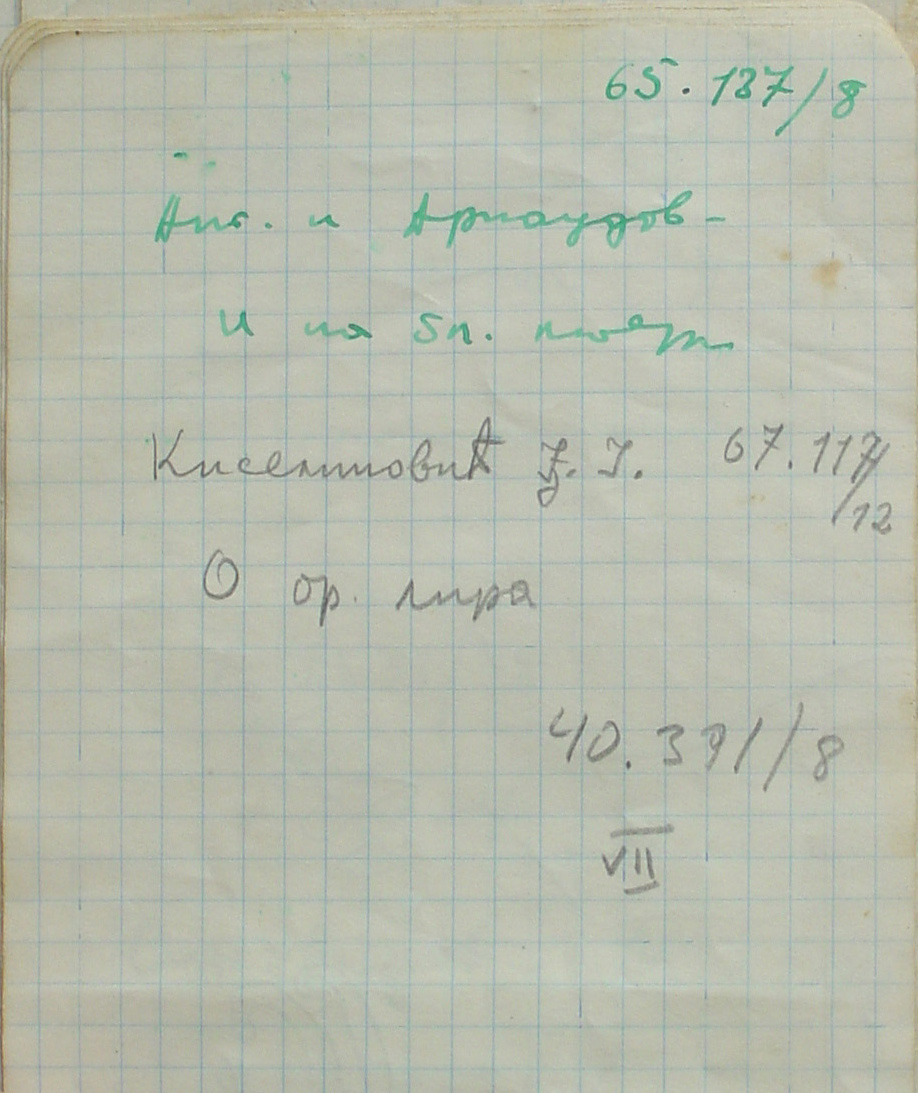 65.137/8
Анг. и Арнаудов-
и на бл.
Киселиновић Ј. Ј. 67.117
/12
О ор. лира
40.391/8
VII